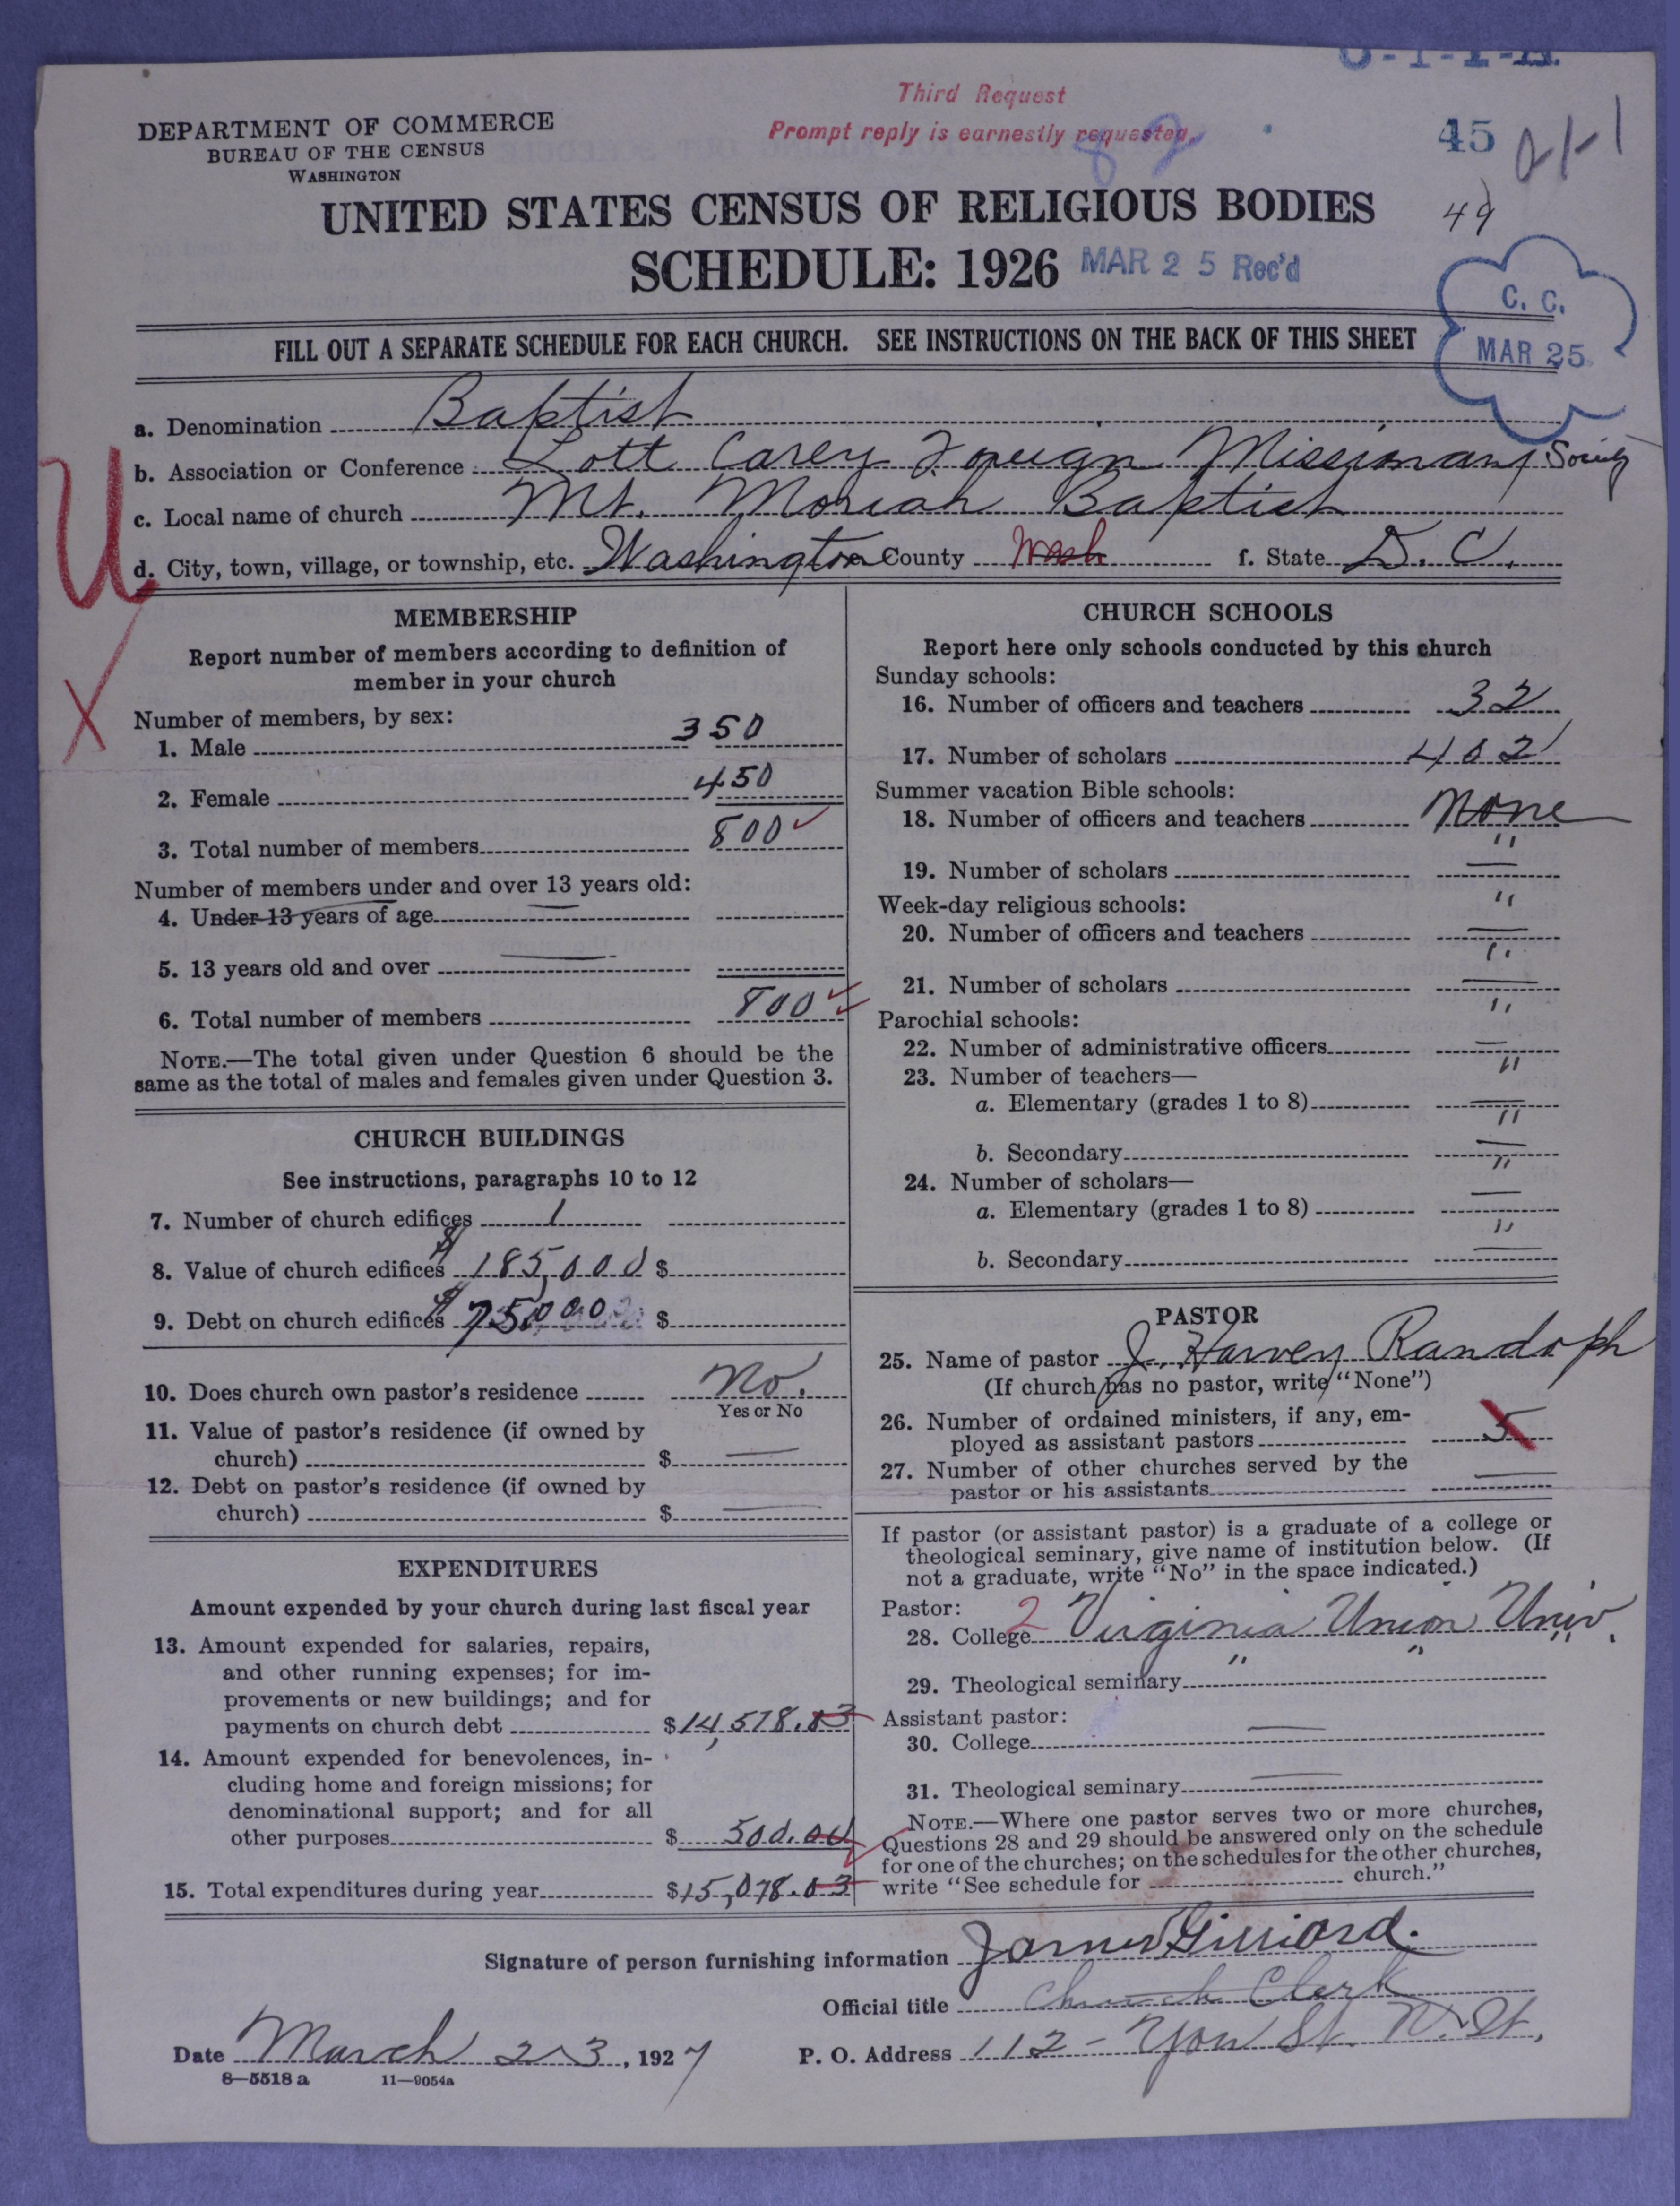 Third Request
Prompt reply is earnestly requested.
DEPARTMENT OF COMMERCE
BUREAU OF THE CENSUS
WASHINGTON
45
49
UNITED STATES CENSUS OF RELIGIOUS BODIES
SCHEDULE: 1926 MAR 25 Rec'd
C. C.
MAR 25
FILL OUT A SEPARATE SCHEDULE FOR EACH CHURCH. SEE INSTRUCTIONS ON THE BACK OF THIS SHEET
a. Denomination Baptist
b. Association or Conference Lott Carey Foreign Missionary Society
c. Local name of church Mt. Moriah Baptist
d. City, town, village, or township, etc. Washington County Wash f. State D. C.
U
X
MEMBERSHIP
Report number of members according to definition of
member in your church
Number of members, by sex:
1. Male 350
2. Female 450
3. Total number of members 800
Number of members under and over 13 years old:
4. Under 13 years of age
5. 13 years old and over
6. Total number of members 800
NOTE.—The total given under Question 6 should be the
same as the total of males and females given under Question 3.
CHURCH BUILDINGS
See instructions, paragraphs 10 to 12
7. Number of church edifices 1
8. Value of church edifices $185,000 $
9. Debt on church edifices $ $
10. Does church own pastor's residence No.
Yes or No
11. Value of pastor's residence (if owned by
church) $ —
12. Debt on pastor's residence (if owned by
church) $ —
EXPENDITURES
Amount expended by your church during last fiscal year
13. Amount expended for salaries, repairs,
and other running expenses; for im-
provements or new buildings; and for
payments on church debt $14,578.03
14. Amount expended for benevolences, in-
cluding home and foreign missions; for
denominational support; and for all
other purposes $ 500.00
15. Total expenditures during year $15,078.03
CHURCH SCHOOLS
Report here only schools conducted by this church
Sunday schools:
16. Number of officers and teachers 32
17. Number of scholars 402
Summer vacation Bible schools:
18. Number of officers and teachers None
19. Number of scholars "
Week-day religious schools:
20. Number of officers and teachers "
21. Number of scholars "
Parochial schools:
22. Number of administrative officers "
23. Number of teachers—
a. Elementary (grades 1 to 8) "
b. Secondary "
24. Number of scholars—
a. Elementary (grades 1 to 8) "
b. Secondary "
PASTOR
25. Name of pastor J. Harvey Randolph
(If church has no pastor, write "None")
26. Number of ordained ministers, if any, em-
ployed as assistant pastors 5
27. Number of other churches served by the
pastor or his assistants —
If pastor (or assistant pastor) is a graduate of a college or
theological seminary, give name of institution below. (If
not a graduate, write "No" in the space indicated.)
Pastor:
28. College 2 Virginia Union Univ.
29. Theological seminary " " "
Assistant pastor:
30. College —
31. Theological seminary —
NOTE.—Where one pastor serves two or more churches,
Questions 28 and 29 should be answered only on the schedule
for one of the churches; on the schedules for the other churches,
write "See schedule for church."
Signature of person furnishing information James Gilliard.
Official title Church Clerk
Date March 23, 1927 P. O. Address 112 - You St. N.W.
8—5518 a 11—9054a